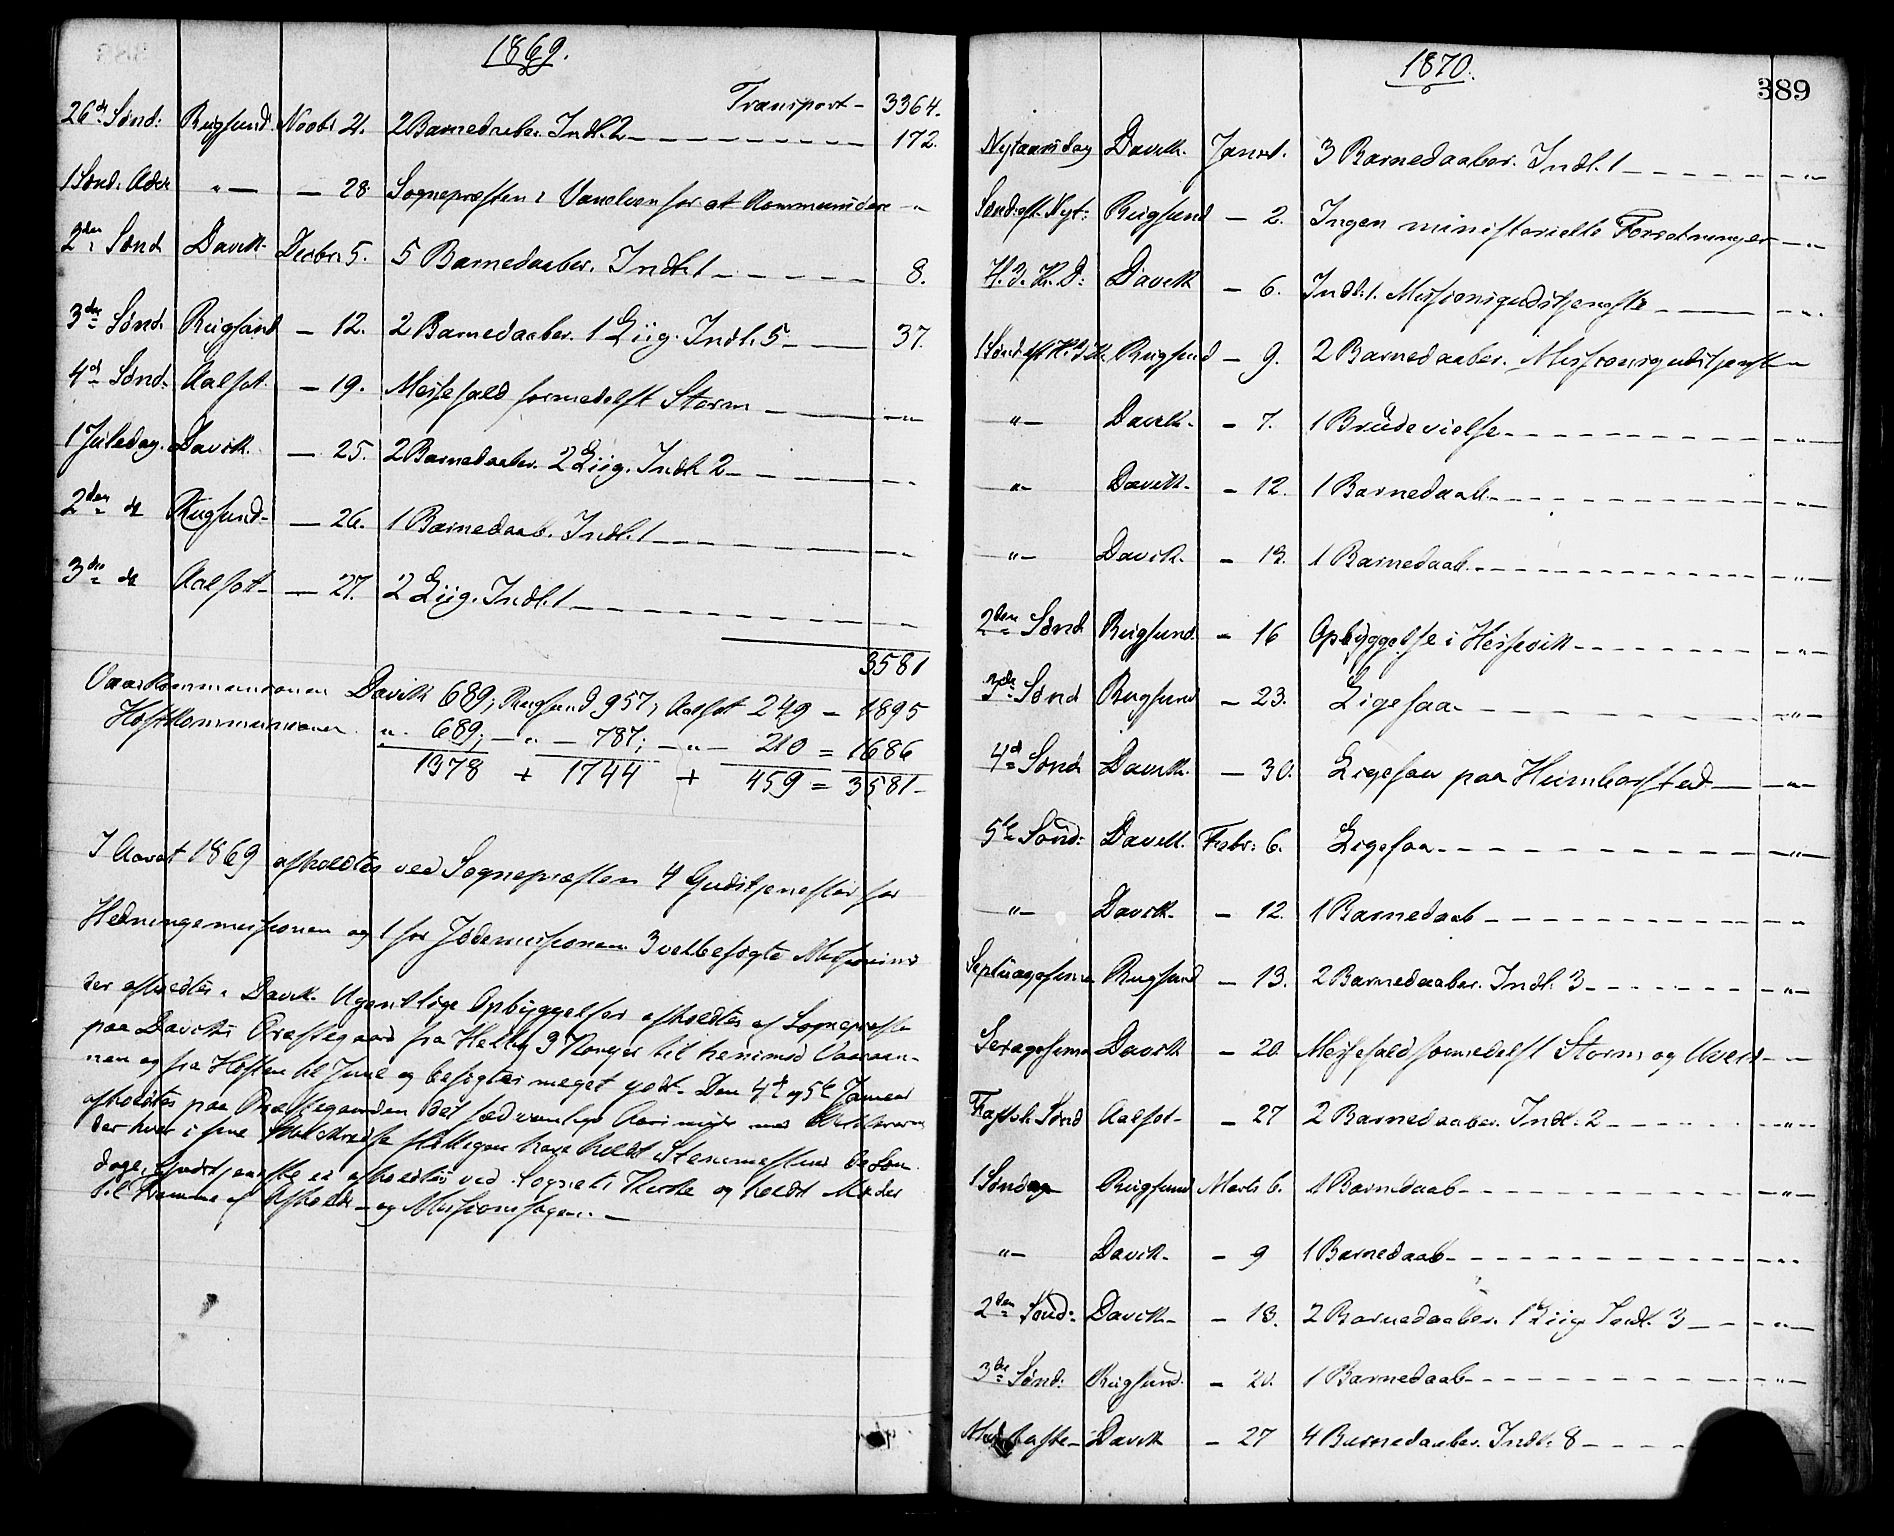 1869.
Transport - 3364.
26de Sønd: Rugsund Novbr 21. 2 Barnedaaber. Indl. 2 - 172.
1 Sønd. Adv. " - 28. Sognepræsten i Vanelven for at Kommunicere - "
2den Sønd Davik Decbr: 5. 5 Barnedaaber. Indl. 1 - 8.
3die Sønd. Rugsund - 12. 2 Barnedaaber. 1 Liig. Indl. 5 - 37.
4de Sønd. Aalfot - 19. Messefald formedelst Storm - "
1 Juledag. Davik. - 25. 2 Barnedaaber. 2 Liig. Indl. 2 - "
2den do Rugsund - 26. 1 Barnedaab. Indl. 1 - "
3die do Aalfot - 27. 2 Liig. Indl. 1 - "
3581
Vaarkommunionen Davik 689; Rugsund 957; Aalfot 249 = 1895
Høstkommunionen " 689; - " - 787; - " - 210 = 1686
1378 + 1744 + 459 = 3581 -
I Aaret 1869 afholdtes ved Sognepræsten 4 Gudstjenester for
Hedningemissionen og 1 for Jødemissionen. 3 velbesøgte
der afholdtes i Davik. Ugentlige Opbyggelser afholdtes af Sognepræsten
paa Daviks Præstegaard fra Hellig 3 Konger til henimod
og fra Høsten til Juul og besøgtes meget godt. Den 4de og 5te Januar
afholdtes paa Præstegaarden det sædvanlige med
der hver i sine have holdt
Gudstjeneste ei afholdtes ved Sognets Kirke og holdt Møder
til Fremme af Afholds- og Missionssagen. -
1870.
389
Nytaarsdag Davik. Janr 1. 3 Barnedaaber. Indl. 1 - "
Sønd. eft. Nyt: Rugsund - 2. Ingen ministerielle Forretninger - "
H. 3. K. D: Davik - 6. Indl. 1. Missionsgudstjeneste - "
1 Sønd. eft H. 3 K. Rugsund - 9. 2 Barnedaaber. Missionsgudstjeneste - "
" Davik - 7. 1 Brudevielse - "
" Davik - 12. 1 Barnedaab - "
" Davik - 13. 1 Barnedaab - "
2den Sønd Rugsund - 16 Opbyggelse i Hessevik - "
3die Sønd Rugsund - 23. Ligesaa - "
4de Sønd Davik - 30. Ligesaa paa - "
5te Sønd: Davik. Febr: 6. Ligesaa - "
" Davik - 12. 1 Barnedaab - "
Septuagesima Rugsund - 13. 2 Barnedaaber. Indl. 3 - "
Sexagesima Davik - 20 Messefald formedelst Storm og Uveir - "
Fastel. Sønd Aalfot - 27 2 Barnedaaber. Indl. 2 - "
1 Søndag Rugsund Marts 6. 1 Barnedaab - "
" Davik - 9 1 Barnedaab - "
2den Sønd: Davik - 13. 2 Barnedaaber. 1 Liig Indl. 3 - "
3die Sønd: Rugsund. - 20. 1 Barnedaab - "
Midfaste - Davik - 27 4 Barnedaaber. Indl: 8 -